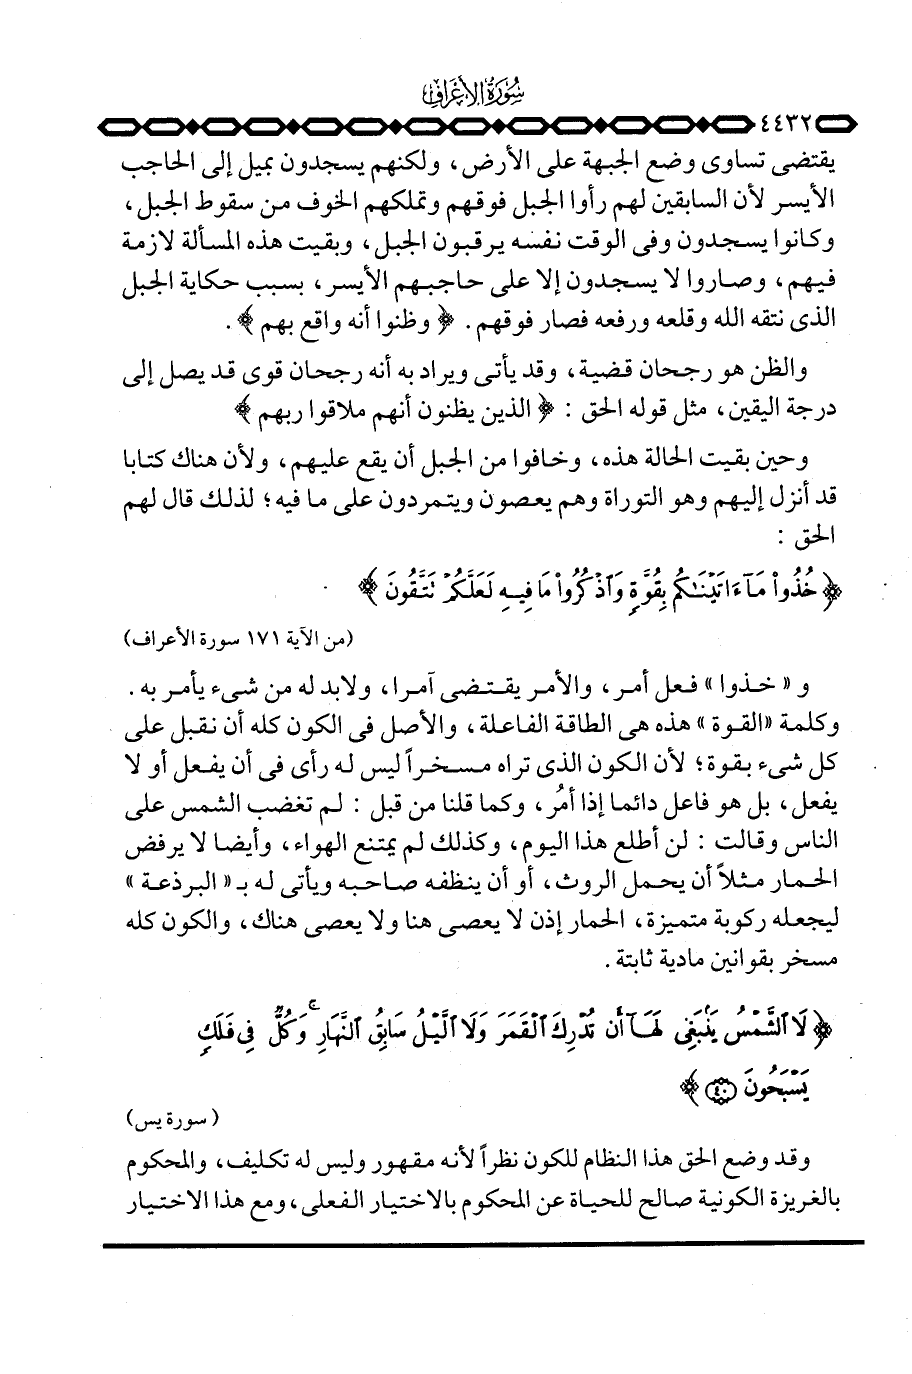 سُورَةُ الأَعْرَافِ
٤٤٣٢
يقتضى تساوى وضع الجبهة على الأرض، ولكنهم يسجدون بميل إلى الحاجب
الأيسر لأن السابقين لهم رأوا الجبل فوقهم وتملكهم الخوف من سقوط الجبل،
وكانوا يسجدون وفى الوقت نفسه يرقبون الجبل، وبقيت هذه المسألة لازمة
فيهم، وصاروا لا يسجدون إلا على حاجبهم الأيسر، بسبب حكاية الجبل
الذى نتقه الله وقلعه ورفعه فصار فوقهم. ﴿ وظنوا أنه واقع بهم ﴾.
والظن هو رجحان قضية، وقد يأتى ويراد به أنه رجحان قوى قد يصل إلى
درجة اليقين، مثل قوله الحق : ﴿ الذين يظنون أنهم ملاقوا ربهم ﴾
وحين بقيت الحالة هذه، وخافوا من الجبل أن يقع عليهم، ولأن هناك كتابا
قد أنزل إليهم وهو التوراة وهم يعصون ويتمردون على ما فيه؛ لذلك قال لهم
الحق :
﴿ خُذُواْ مَآ ءَاتَيْنَٰكُم بِقُوَّةٍ وَٱذْكُرُواْ مَا فِيهِ لَعَلَّكُمْ تَتَّقُونَ ﴾
(من الآية ١٧١ سورة الأعراف)
و « خذوا » فعل أمر، والأمر يقتضى آمرا، ولابد له من شىء يأمر به.
وكلمة «القوة» هذه هى الطاقة الفاعلة، والأصل فى الكون كله أن نقبل على
كل شىء بقوة؛ لأن الكون الذى تراه مسخراً ليس له رأى فى أن يفعل أو لا
يفعل، بل هو فاعل دائما إذا أُمر، وكما قلنا من قبل : لم تغضب الشمس على
الناس وقالت : لن أطلع هذا اليوم، وكذلك لم يمتنع الهواء، وأيضا لا يرفض
الحمار مثلاً أن يحمل الروث، أو أن ينظفه صاحبه ويأتى له بـ « البرذعة »
ليجعله ركوبة متميزة، الحمار إذن لا يعصى هنا ولا يعصى هناك، والكون كله
مسخر بقوانين مادية ثابتة.
﴿ لَا ٱلشَّمْسُ يَنۢبَغِى لَهَآ أَن تُدْرِكَ ٱلْقَمَرَ وَلَا ٱلَّيْلُ سَابِقُ ٱلنَّهَارِ ۚ وَكُلٌّ فِى فَلَكٍ
يَسْبَحُونَ ٤٠ ﴾
(سورة يس)
وقد وضع الحق هذا النظام للكون نظراً لأنه مقهور وليس له تكليف، والمحكوم
بالغريزة الكونية صالح للحياة عن المحكوم بالاختيار الفعلى، ومع هذا الاختيار